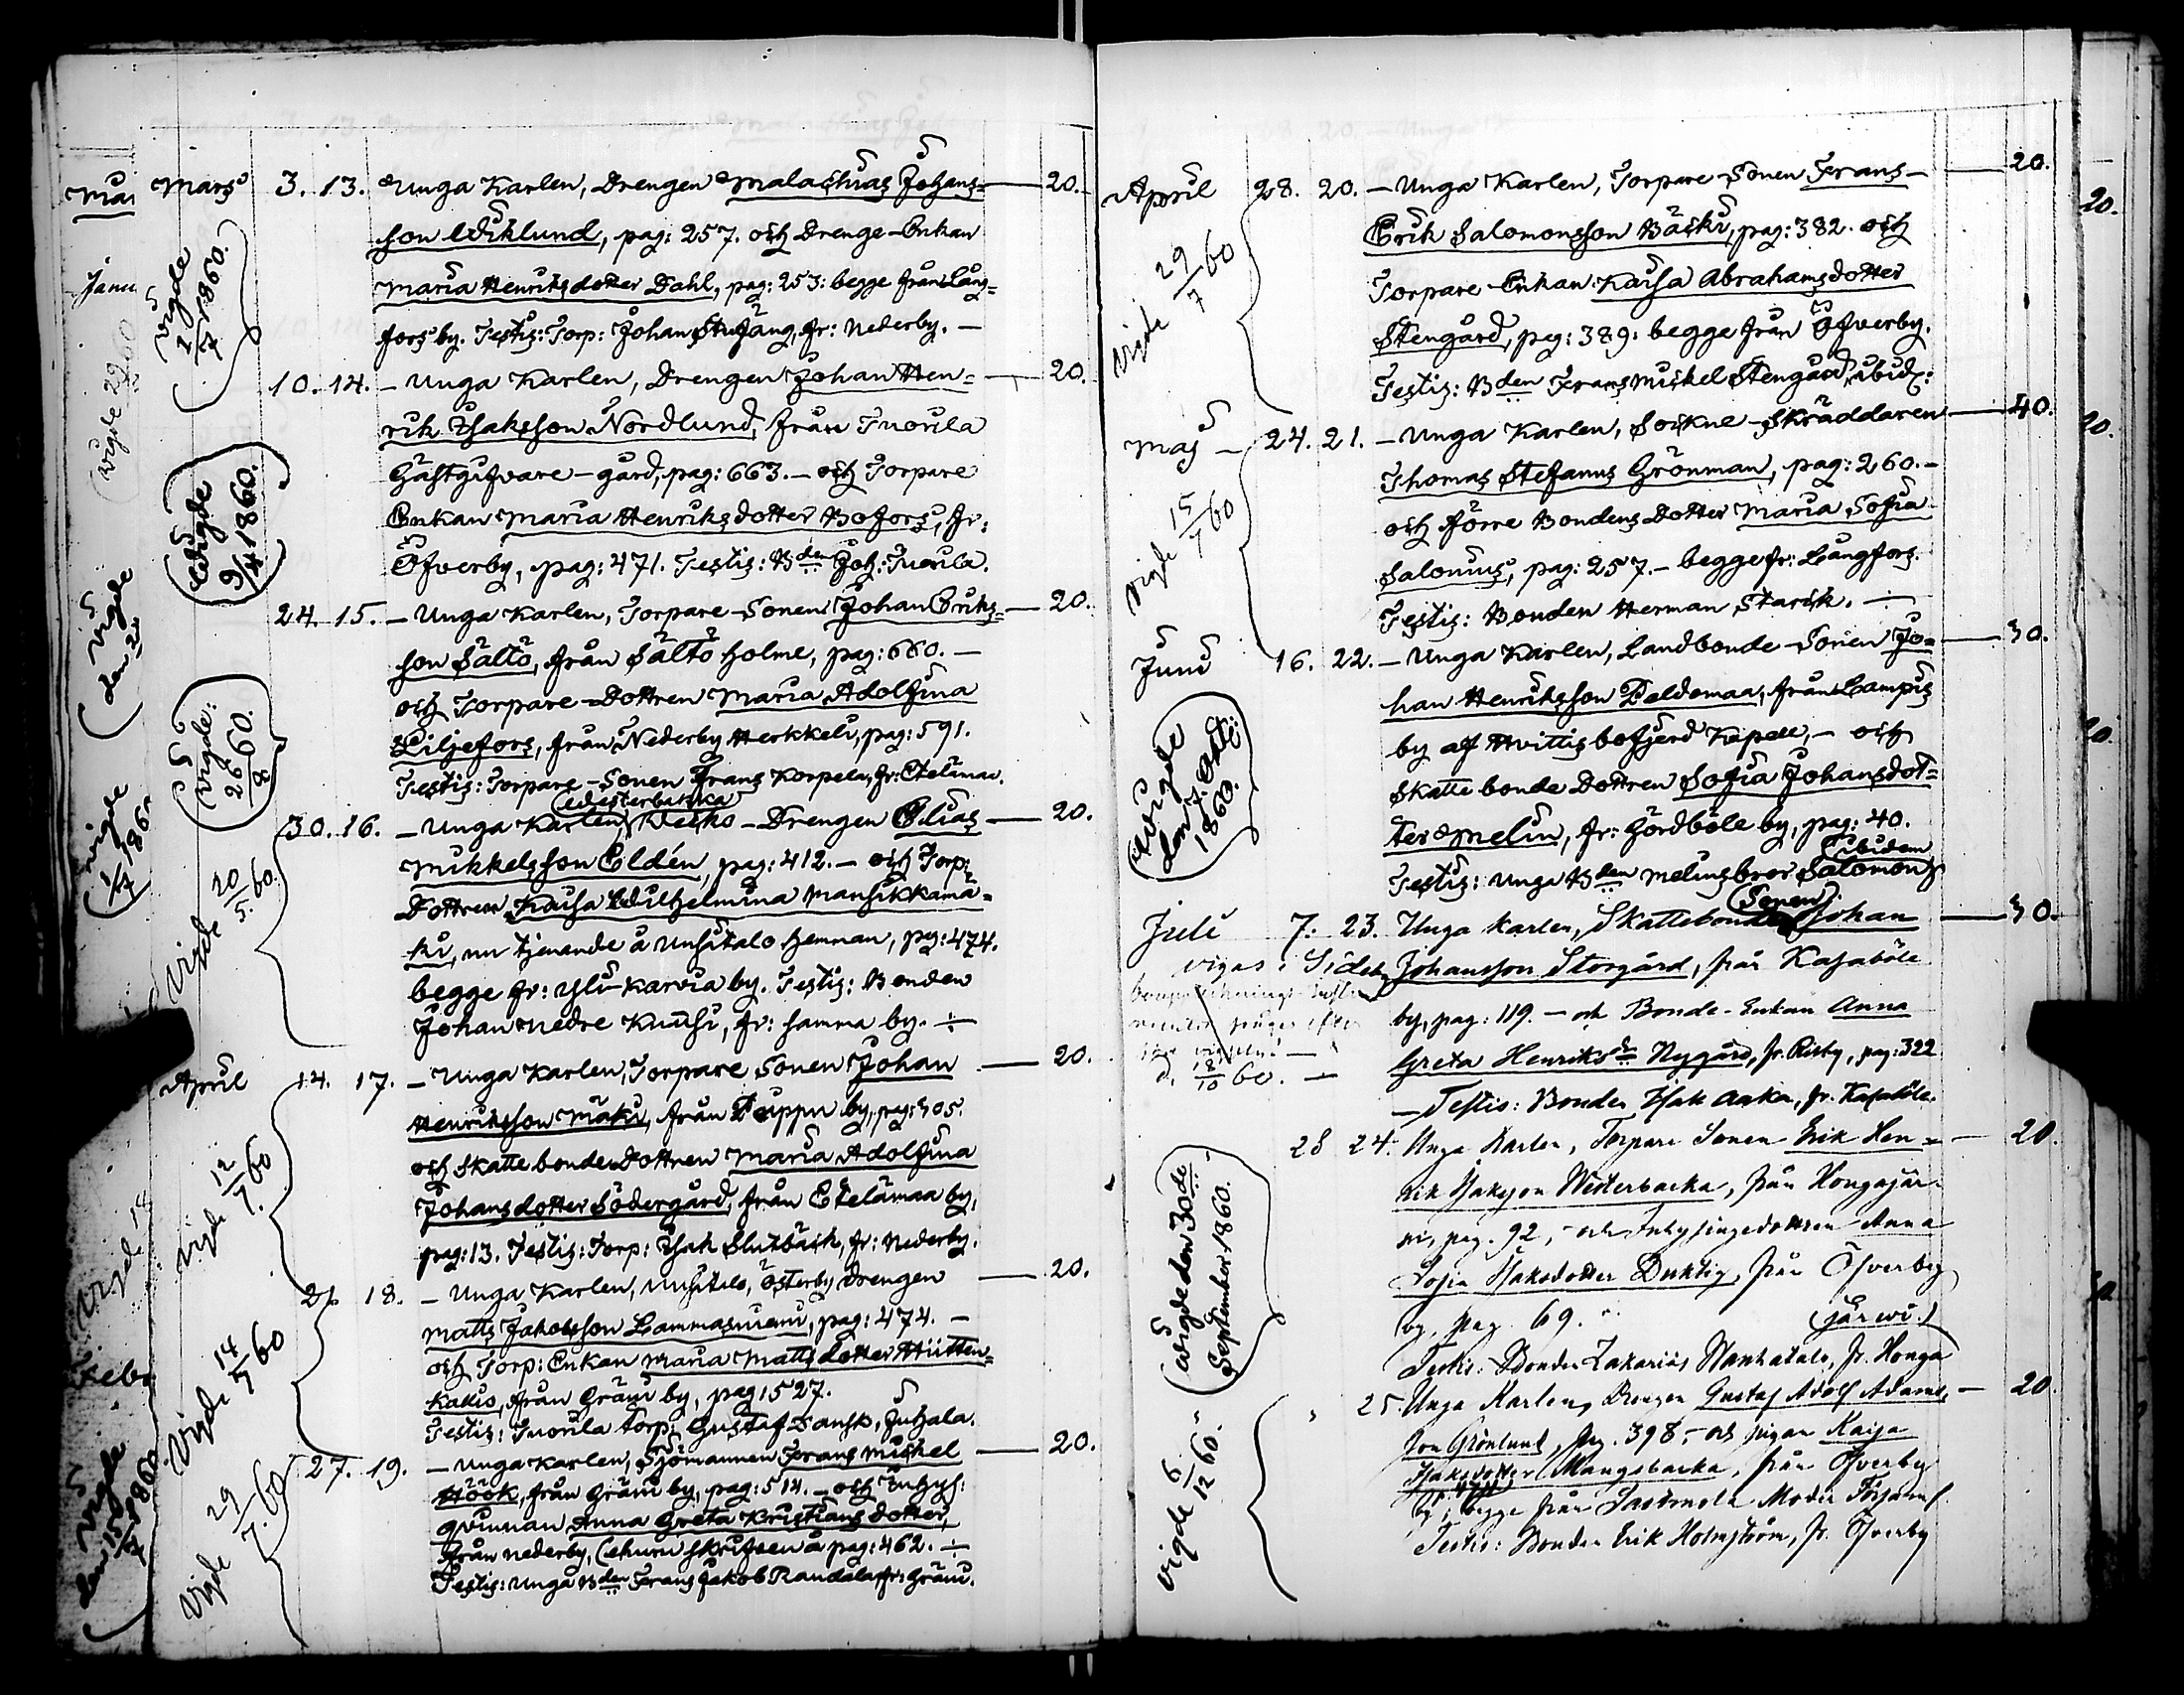 Mars 3. 13. Unga Karlen, Drengen Malachias Johans= 20.
son Wiklund, pag: 257. och Drenge-Enkan
Maria Henriksdotter Dahl, pag: 253: begge från Lång=
fors by. Testis: Torp: Johan Stufäng, fr: Nederby. —
Vigde 1/7 1860.
10. 14. — Unga Karlen, Drengen Johan Hen= 20.
rik Isaksson Nordlund, från Tuorila
Gästgifvare-gård, pag: 663. — och Torpare
Enkan Maria Henriksdotter Bofors, fr:
Öfverby, pag: 471. Testis: Bden Joh: Tuorila.
Vigde 9/4 1860.
24. 15. — Unga Karlen, Torpare-Sonen Johan Eriks= 20.
son Sältö, från Sältö holme, pag: 660. —
och Torpare-Dottren Maria Adolfina
Liljefors, från Nederby Herkkeli, pag: 591.
Testis: Torpare-Sonen Frans Korpela, fr: Etelämaa.
Vigde: 26/8 60.
Westerbacka
30. 16. — Unga Karlen, Weiko-Drengen Elias 20.
Mikkelsson Eldén, pag: 412. — och Torp:
Dottren Kaisa Wilhelmina Mansikkamä=
ki, nu tjenande å Unsitalo hemman, pag: 474.
begge fr: Yli-Karvia by. Testis: Bonden
Johan Nedre Knuusi, fr: samma by. ÷
Vigde 20/5. 60.
April 14. 17. — Unga Karlen, Torpare Sonen Johan 20.
Henriksson Mäki, från Tuppu by, pag: 305.
och skattebonde Dottren Maria Adolfina
Johansdotter Södergård, från Etelämaa by,
pag: 13. Testis: Torp: Isak Slutbäck, fr: Nederby.
Vigde 12/7. 60
21. 18. — Unga Karlen, Unsitalo, Österby Drengen 20.
Matts Jakobsson Lammasniemi, pag: 474. —
och Torp: Enkan Maria Mattsdotter Hiitten=
kakio, från Gräni by, pag 1527.
Testis: Tuorila torp: Gustaf Dansk, Juhala.
Vigde 14/7 60
27. 19. — Unga Karlen, Sjömannen Frans Mickel 20.
Höök, från Gräni by, pag: 514. — och Inhys:
qvinnan Anna Greta Kristiansdotter,
från Nederby, (ehuru skrifven å pag: 462. ÷
Testis: Unga Bden Frans Jakob Randala, fr: Gräni.
Vigde 29/7. 60
April 28. 20. — Unga Karlen, Torpare-Sonen Frans 20.
Erik Salomonsson Bäcki, pag: 382. och
Torpare-Enkan Kaisa Abrahamsdotter
Stengård, pag: 389: begge från Öfverby.
Testis: Bden Frans Mickel Stengård, ibid:
Vigde 29/7 60
Maj — 24. 21. — Unga Karlen, Sockne-Skräddaren 40.
Thomas Stefanus Grönman, pag: 260. —
och förre Bondens Dotter Maria Sofia
Salonius, pag: 257. — begge fr: Långfors.
Testis: Bonden Herman Starck. ÷
Vigde 15/7 60
Juni 16. 22. — Unga Karlen, Landbonde-Sonen Jo= 30.
han Henriksson Peldomaa, från Lampis
by af Hvittisbofjerd Kapell, — och
Skattebonde Dottren Sofia Johansdot=
ter Melin, fr: Gårdböle by, pag: 40.
ibidem
Testis: Unga Bden Melins bror Salomon
Vigde den 7. Oct: 1860.
Sonen
Juli 7. 23. Unga Karlen, Skattebonde Johan 30.
Johansson Storgård, från Kasaböle
by, pag: 119. — och Bonde-Enkan Anna
Greta Henriksdr Nygård, fr. Risby, pag: 322
— Testis: Bonden Isak Aaka, fr. Kasaböle.
vigas i Sideby
d. 18/10 60. —
28 24. Unga Karlen, Torpare Sonen Erik Hen= — 20.
rik Isaksson Westerbacka, från Hongajär-
wi, pag. 92, — och Inhysingedottren Anna
Sofia Isaksdotter Duktig, från Öfverby
by, pag. 69.
järwi.)
Testis: Bonden Zakarias Wanhatalo, fr. Honga
Vigde den 30de September 1860.
" 25. Unga Karlen, Drengen Gustaf Adolf Adams= — 20.
son Grönlund, pag. 398, — och pigan Kaisa
Isaksdotter Mangsbacka, från Öfverby
by, begge från Sastmola Moder Församl.
Testis: Bonden Erik Holmström, fr. Öfverby
Vigde 6/12 60.